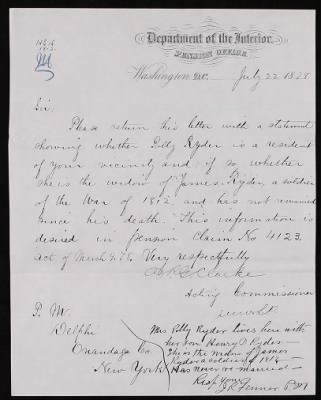 Department of the Interior,
PENSION OFFICE,
Washington, D.C. July 22 1878
Sir:
Please return this letter with a statement
showing whether Polly Ryder is a resident
of your vicinity and if so whether
she is the widow of James Ryder, a soldier
of the War of 1812 and has not remarried
since his death. This information is
desired in pension Claim No 4123.
Act of March 9. 78. Very respectfully
Clarke
Acting Commissioner
P. M.
Delphi
Onandaga Co
New York
Mrs Polly Ryder lives here with
her son Henry Ryder
She is the widow of James
Ryder a soldier of 1812
Has never re married
Resp yours
Fenner P M